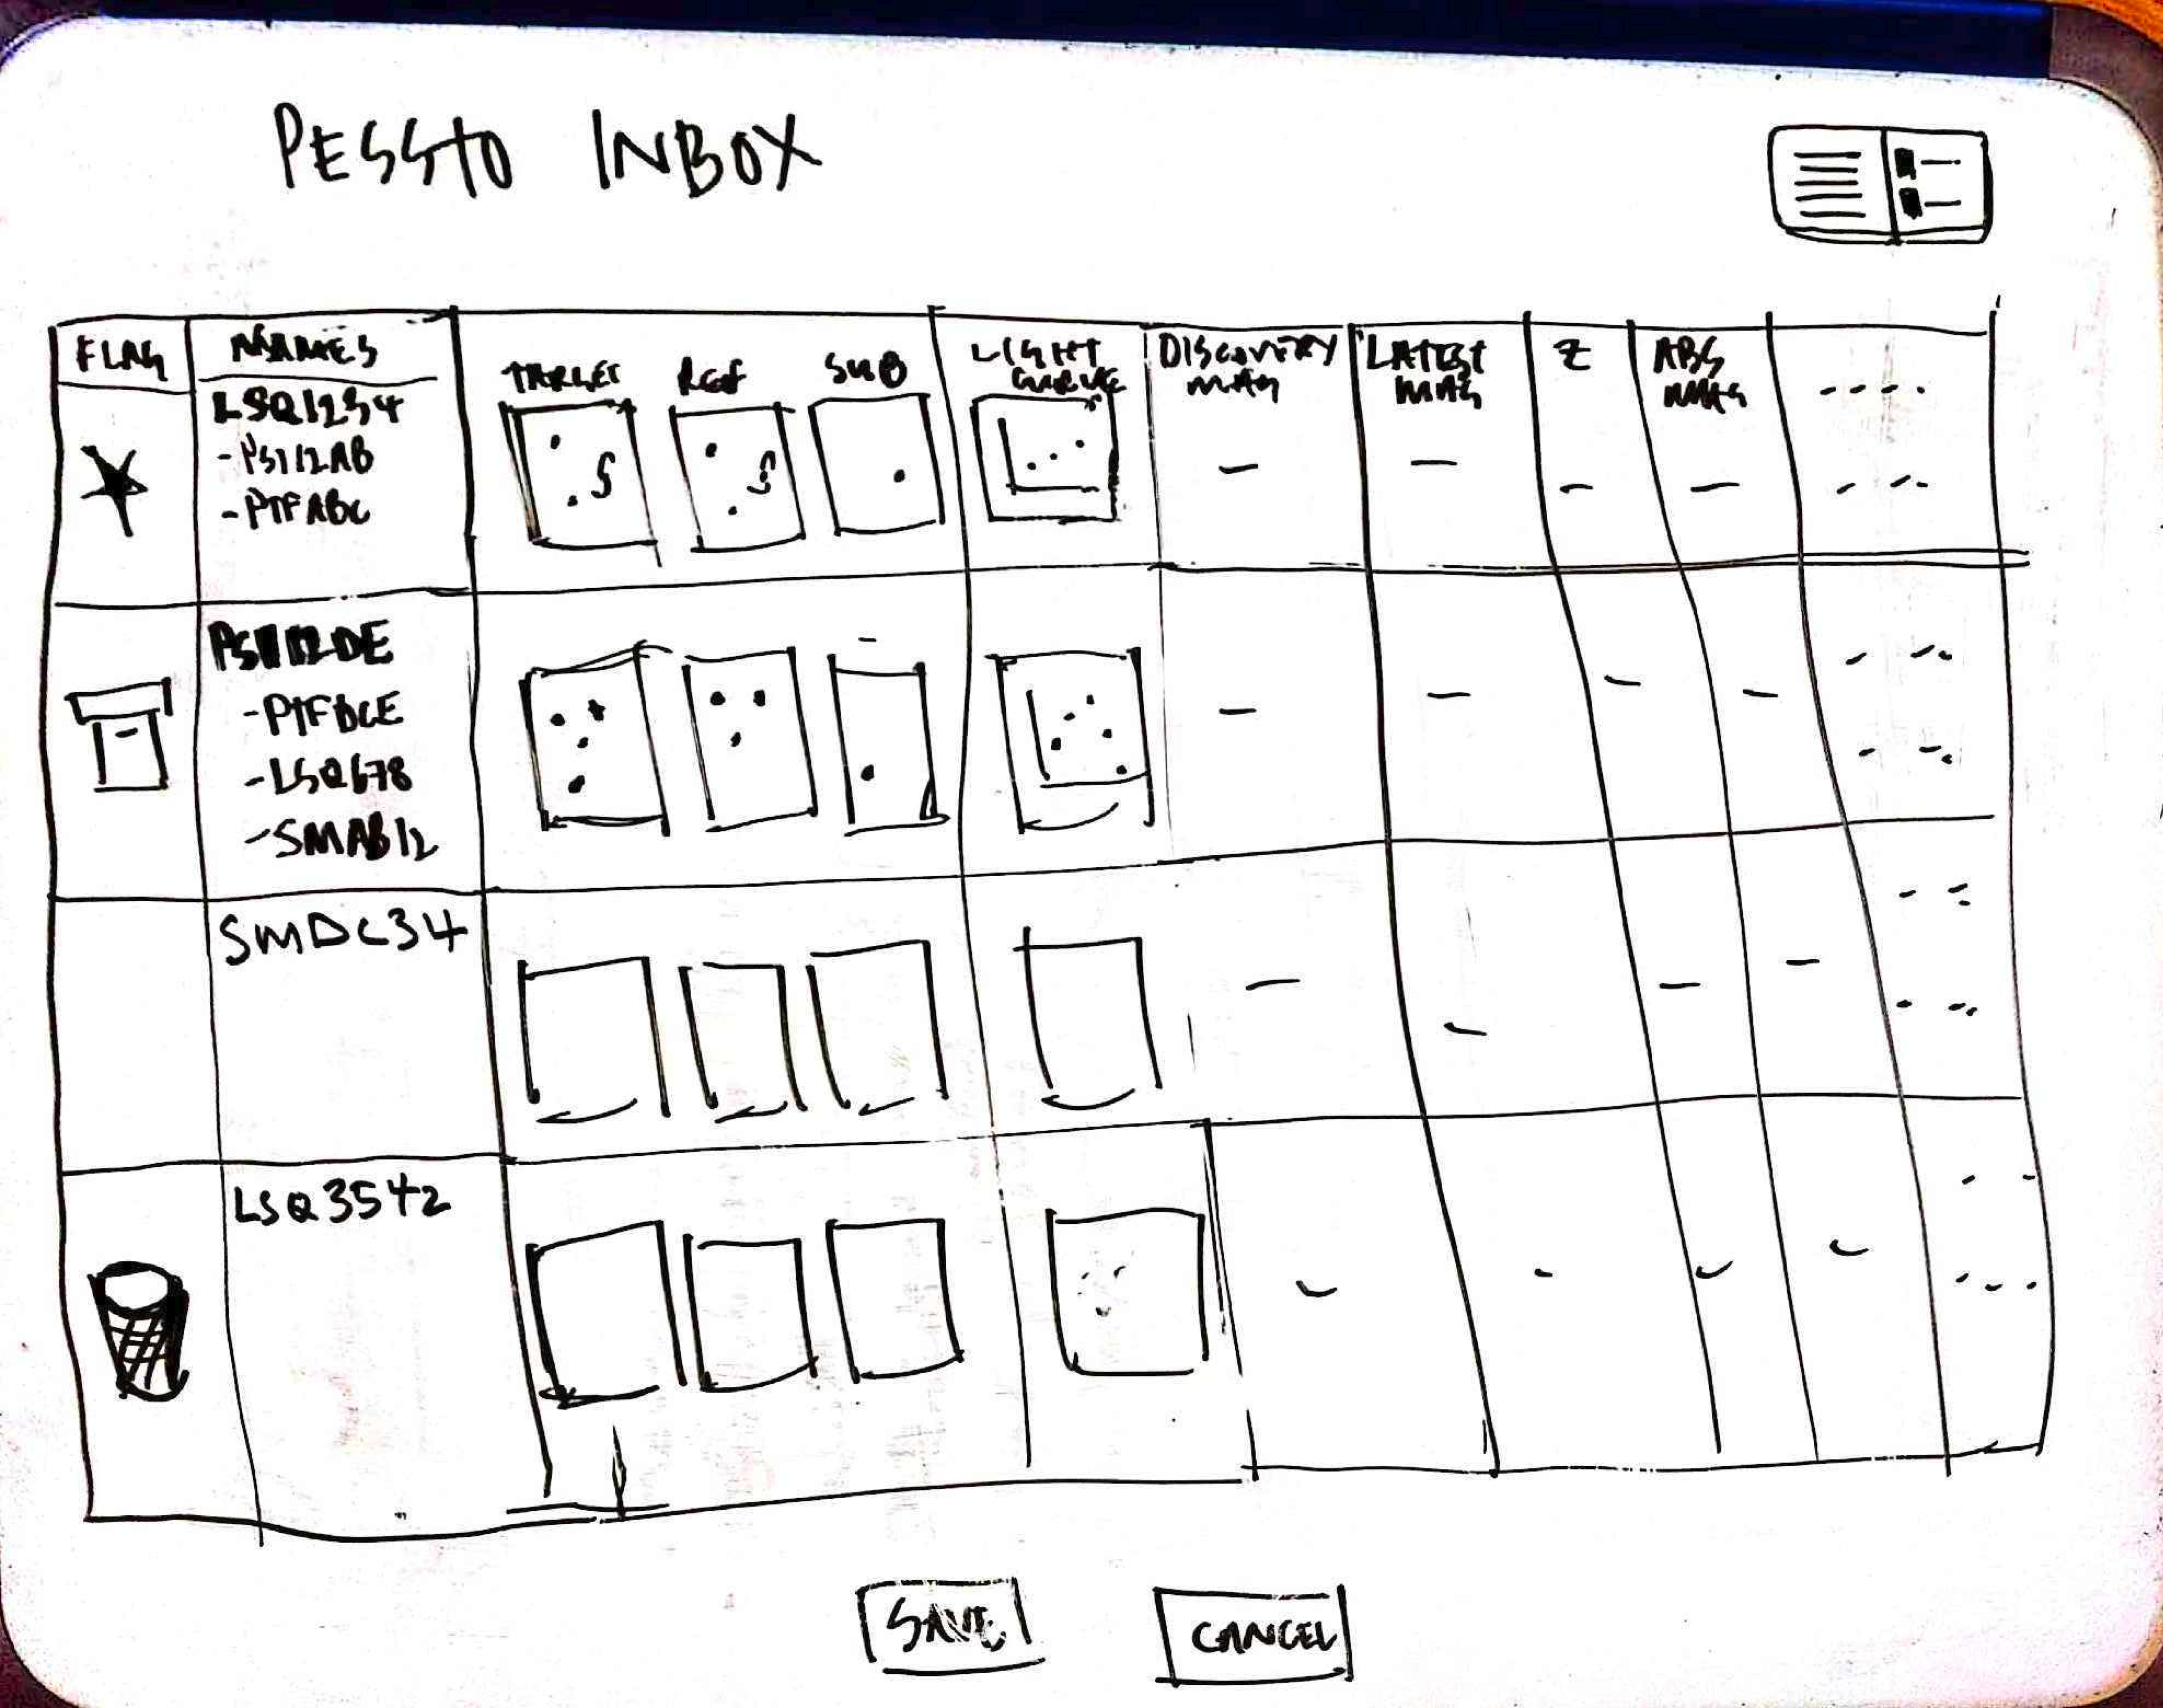 PESSTO INBOX
FLAG
NAMES
TARGET
REF
SUB
LIGHT
CURVE
DISCOVERY
MAG
LATEST
MAG
Z
ABS
MAG
LSQ1234
-PS112AB
-PTFABC
PS112DE
-PTFBCE
-LSQ678
-SMAB12
SMDC34
LSQ3542
SAVE
CANCEL